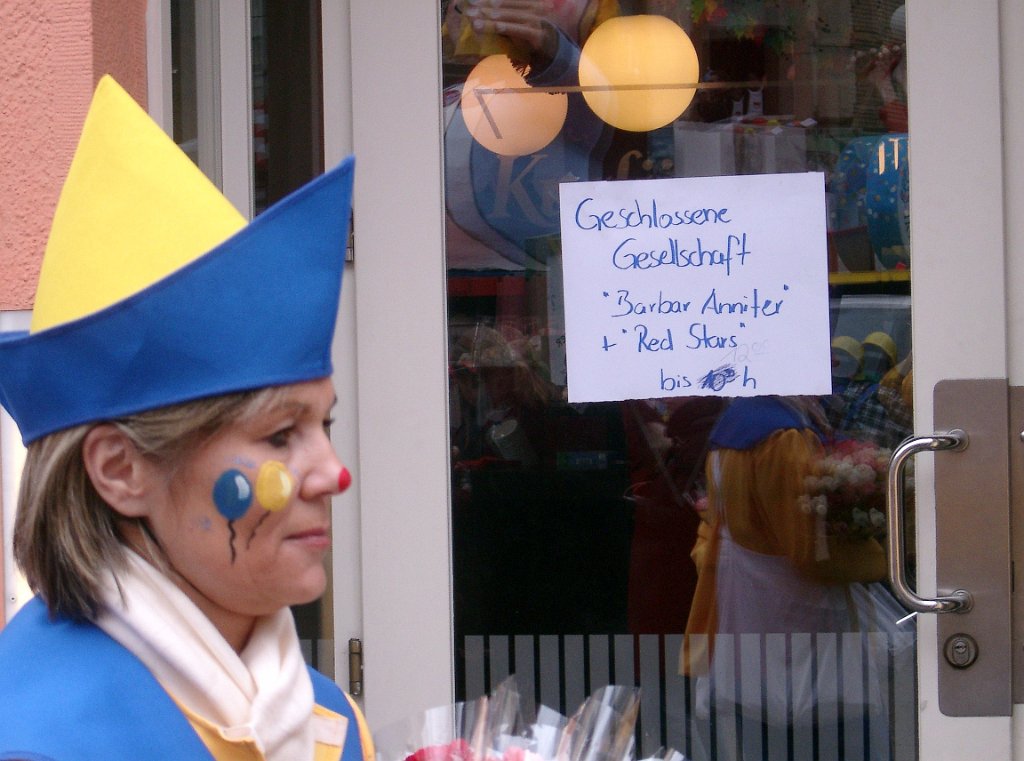 Geschlossene
Gesellschaft
"Barbar Anniter"
+ "Red Stars"
12°°
bis h